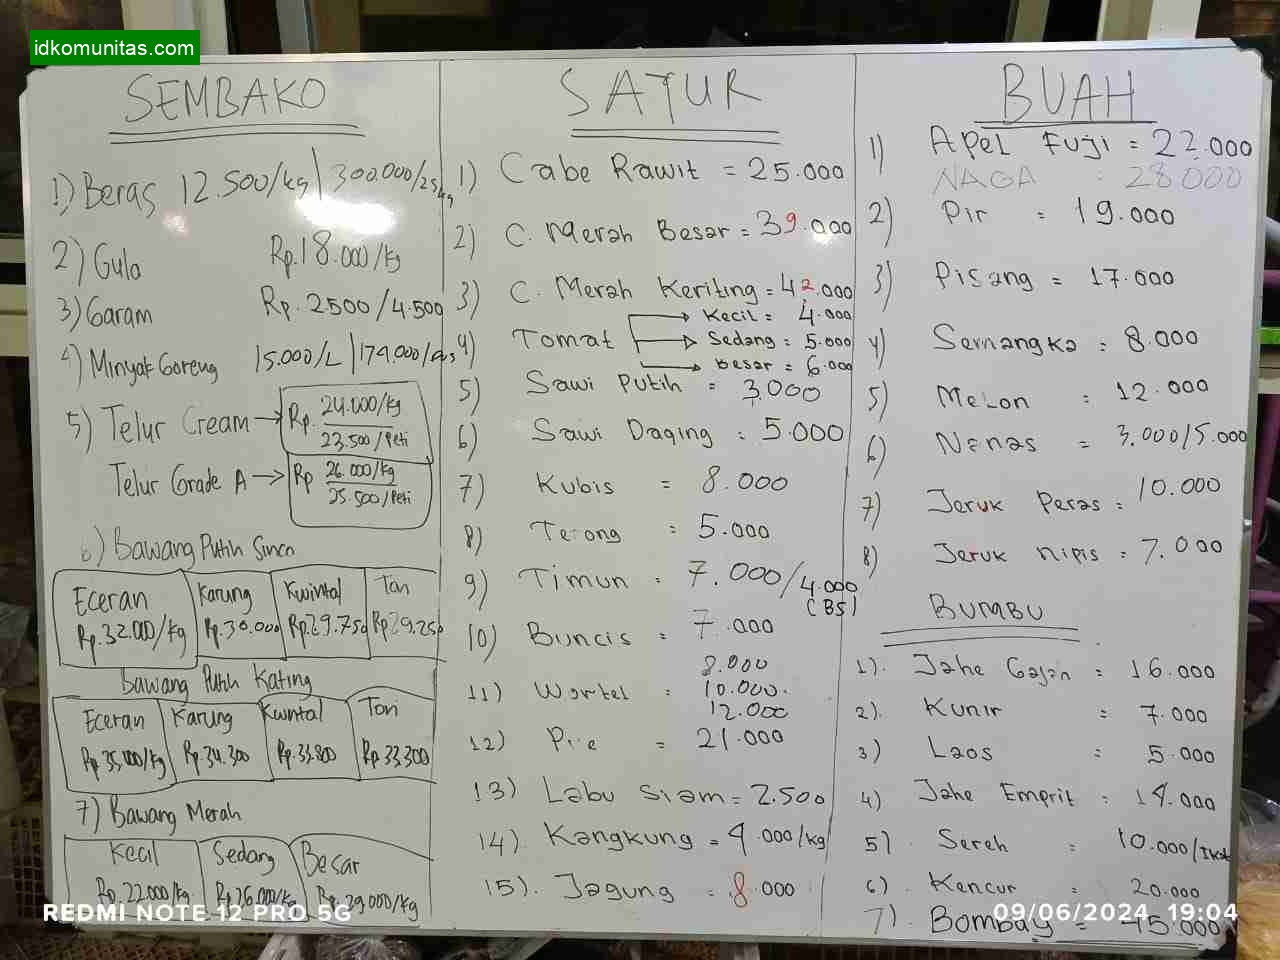 idkomunitas.com
SEMBAKO
1) Beras 12.500/kg | 300.000/25kg
2) Gula Rp.18.000/kg
3) Garam Rp.2500/4.500
4) Minyak Goreng 15.000/L | 174.000/dus
5) Telur Cream → Rp. 24.000/kg
23.500/Peti
Telur Grade A → Rp 26.000/kg
25.500/Peti
6) Bawang Putih Sinco
Eceran Karung Kwintal Ton
Rp.32.000/kg Rp.30.000 Rp.29.750 Rp.29.250
Bawang Putih Kating
Eceran Karung Kwintal Ton
Rp.35.000/kg Rp.34.300 Rp.33.800 Rp.33.300
7) Bawang Merah
Kecil Sedang Besar
Rp.22.000/kg Rp.26.000/kg Rp.29.000/kg
SAYUR
1) Cabe Rawit = 25.000
2) C. Merah Besar = 39.000
3) C. Merah Keriting = 42.000
4) Tomat Kecil = 4.000
Sedang = 5.000
Besar = 6.000
5) Sawi Putih = 3.000
6) Sawi Daging = 5.000
7) Kubis = 8.000
8) Terong = 5.000
9) Timun = 7.000/4.000
(BS)
10) Buncis = 7.000
8.000
11) Wortel = 10.000
12.000
12) Pre = 21.000
13) Labu Siam = 2.500
14). Kangkung = 4.000/kg
15). Jagung = 8.000
BUAH
1) Apel Fuji = 22.000
NAGA : 28.000
2) Pir = 19.000
3) Pisang = 17.000
4) Semangka = 8.000
5) Melon : 12.000
6) Nanas = 3.000/5.000
7) Jeruk Peras = 10.000
8) Jeruk Nipis = 7.000
BUMBU
1). Jahe Gajah = 16.000
2). Kunir = 7.000
3) Laos = 5.000
4) Jahe Emprit = 14.000
5) Sereh = 10.000/Ikat
6) Kencur = 20.000
7) Bombay = 45.000
REDMI NOTE 12 PRO 5G
09/06/2024 19:04